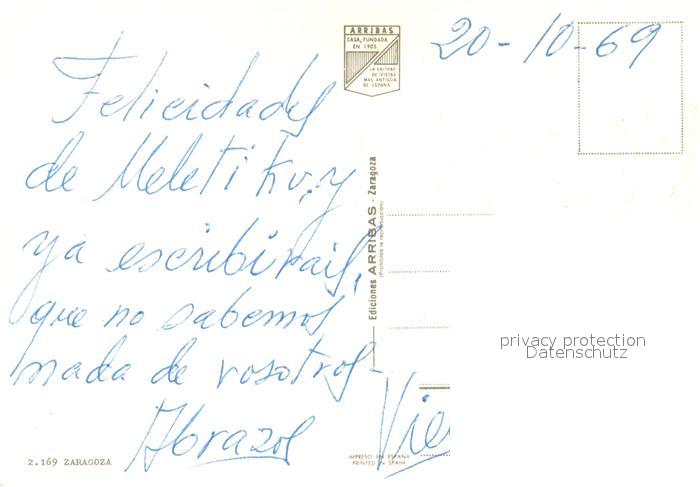 ARRIBAS
CASA FUNDADA
EN 1905
LA EDITORA
DE VISTAS
MAS ANTIGUA
DE ESPAÑA
20-10-69
Felicidades
de Meleti Kv, y
ya escribirais,
que no sabemos
nada de vosotros-
Abrazos
Vie
Ediciones ARRIBAS - Zaragoza
(Prohibida la reproducción)
privacy protection
Datenschutz
2.169 ZARAGOZA
IMPRESO EN ESPAÑA
PRINTED IN SPAIN